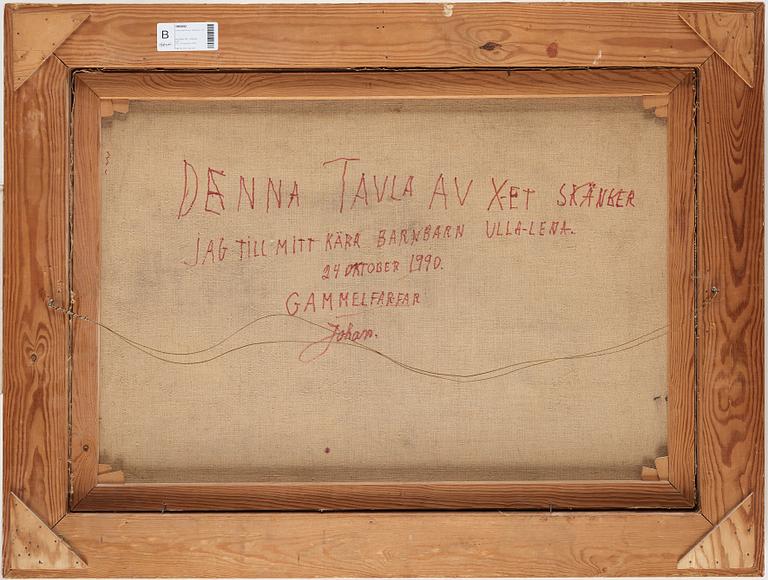 B
DENNA TAVLA AV X-ET SKÄNKER
JAG TILL MITT KÄRA BARNBARN ULLA-LENA.
24 OKTOBER 1990.
GAMMELFARFAR
Johan.